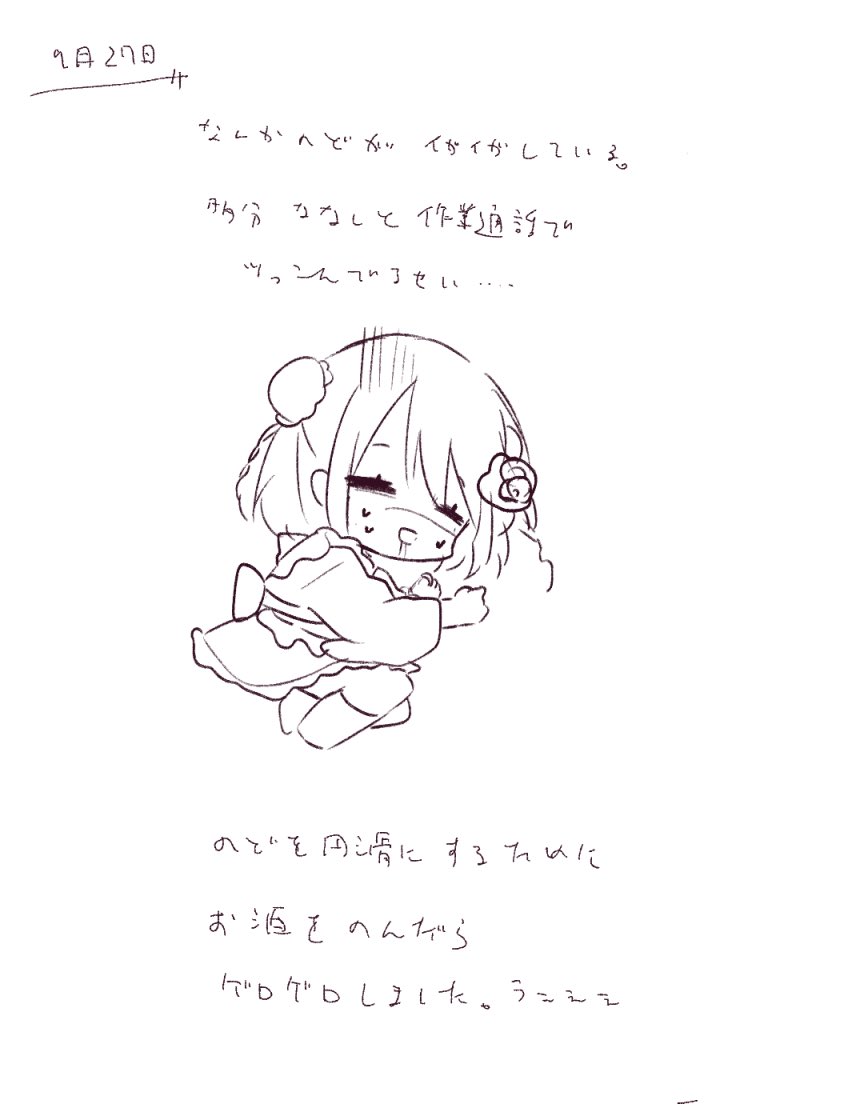 9月27日
なんかのどが イガイガしている。
多分 ななしと 作業通話で
ツっこんでいるせい....
のどを円滑に するために
お酒を のんだら
ゲロゲロしました。うえええ